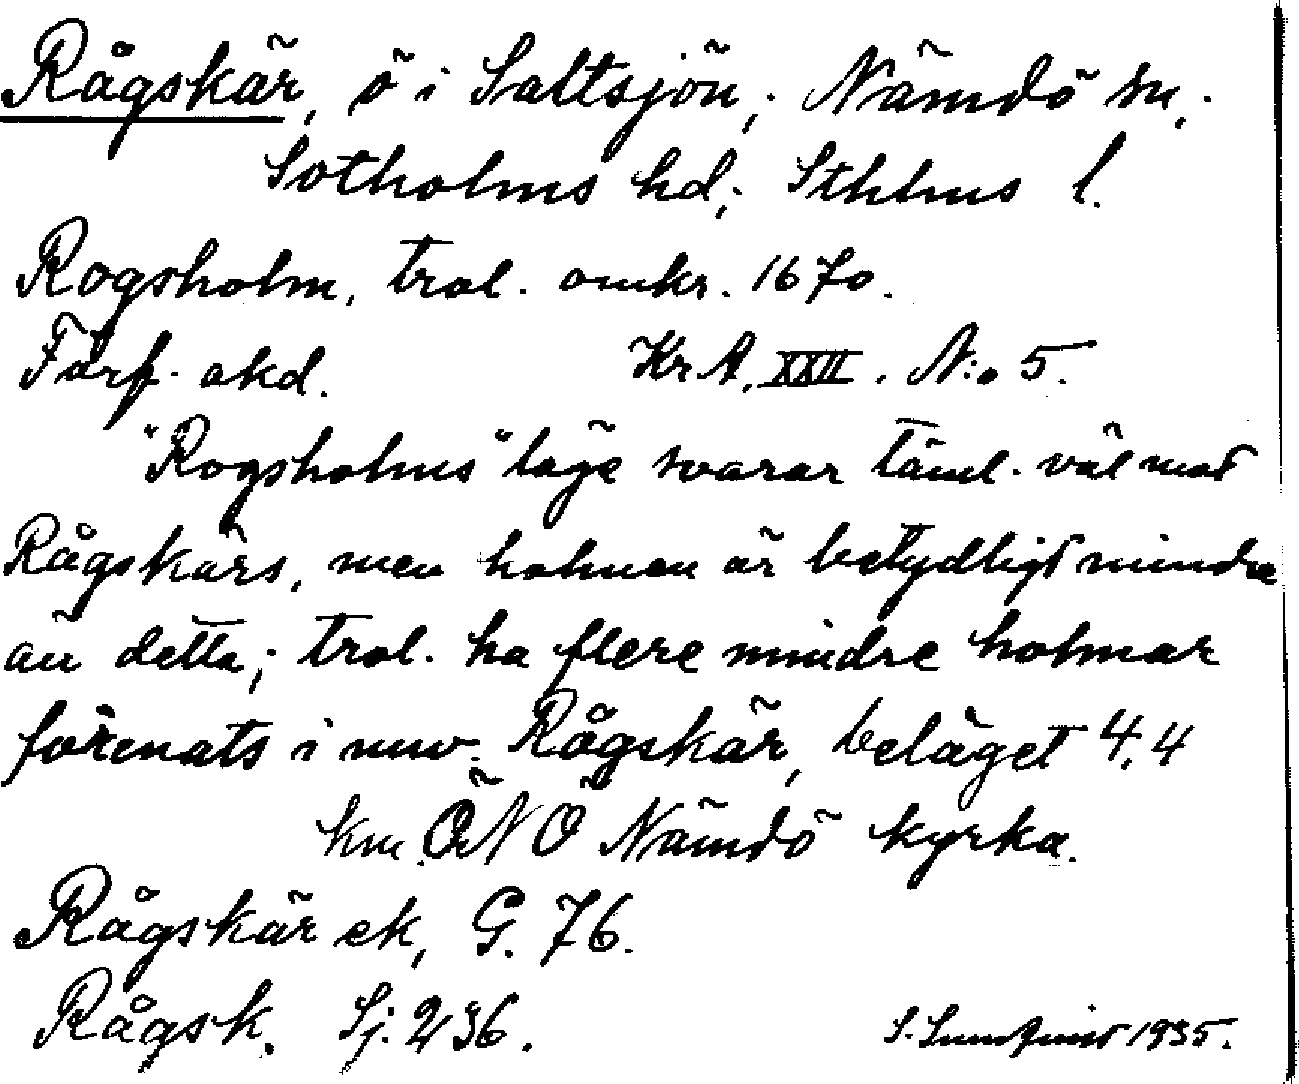 Rågskär, ö i Saltsjön; Nämdö sn,
Sotholms hd; Sthlms l.
Rogsholm, trol. omkr. 1670.
Förf. okd. Kr.A. XXIII. N:o 5.
"Rogsholms" läge svarar täml. väl mot
Rågskärs, men holmen är betydligt mindre
än detta; trol. ha flere mindre holmar
förenats i nuv. Rågskär, beläget 4,4
km ÖNÖ Nämdö kyrka.
Rågskär ek, G. 76.
Rågsk. Sj. 236. S. Lundquist 1935.